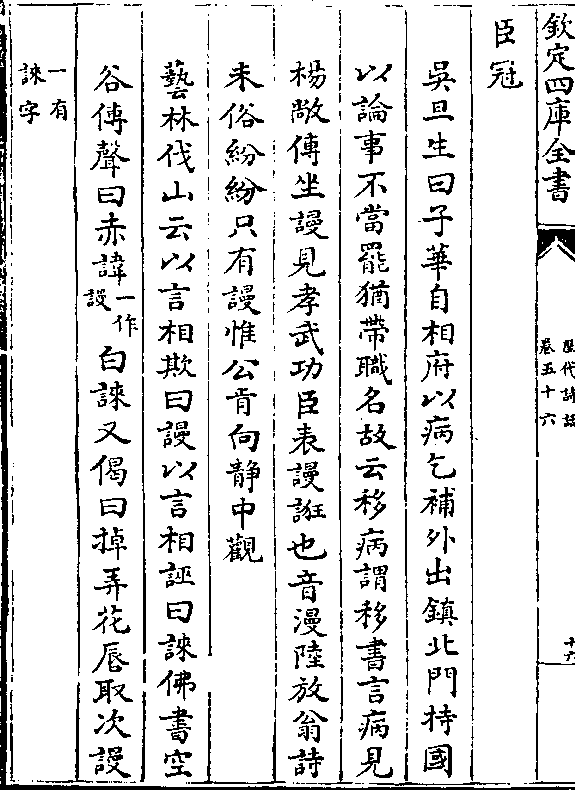 欽定四庫全書
歷代詩話
卷五十六
十六
臣冠
吳旦生曰子華自相府以病乞補外出鎮北門持國
以論事不當罷猶帶職名故云移病謂移書言病見
楊敞傳坐謾見孝武功臣表謾誑也音漫陸放翁詩
末俗紛紛只有謾惟公肯向靜中觀
藝林伐山云以言相欺曰謾以言相誣曰誺佛書空
谷傳聲曰赤諱一作謾白誺又偈曰掉弄花唇取次謾
一有誺字